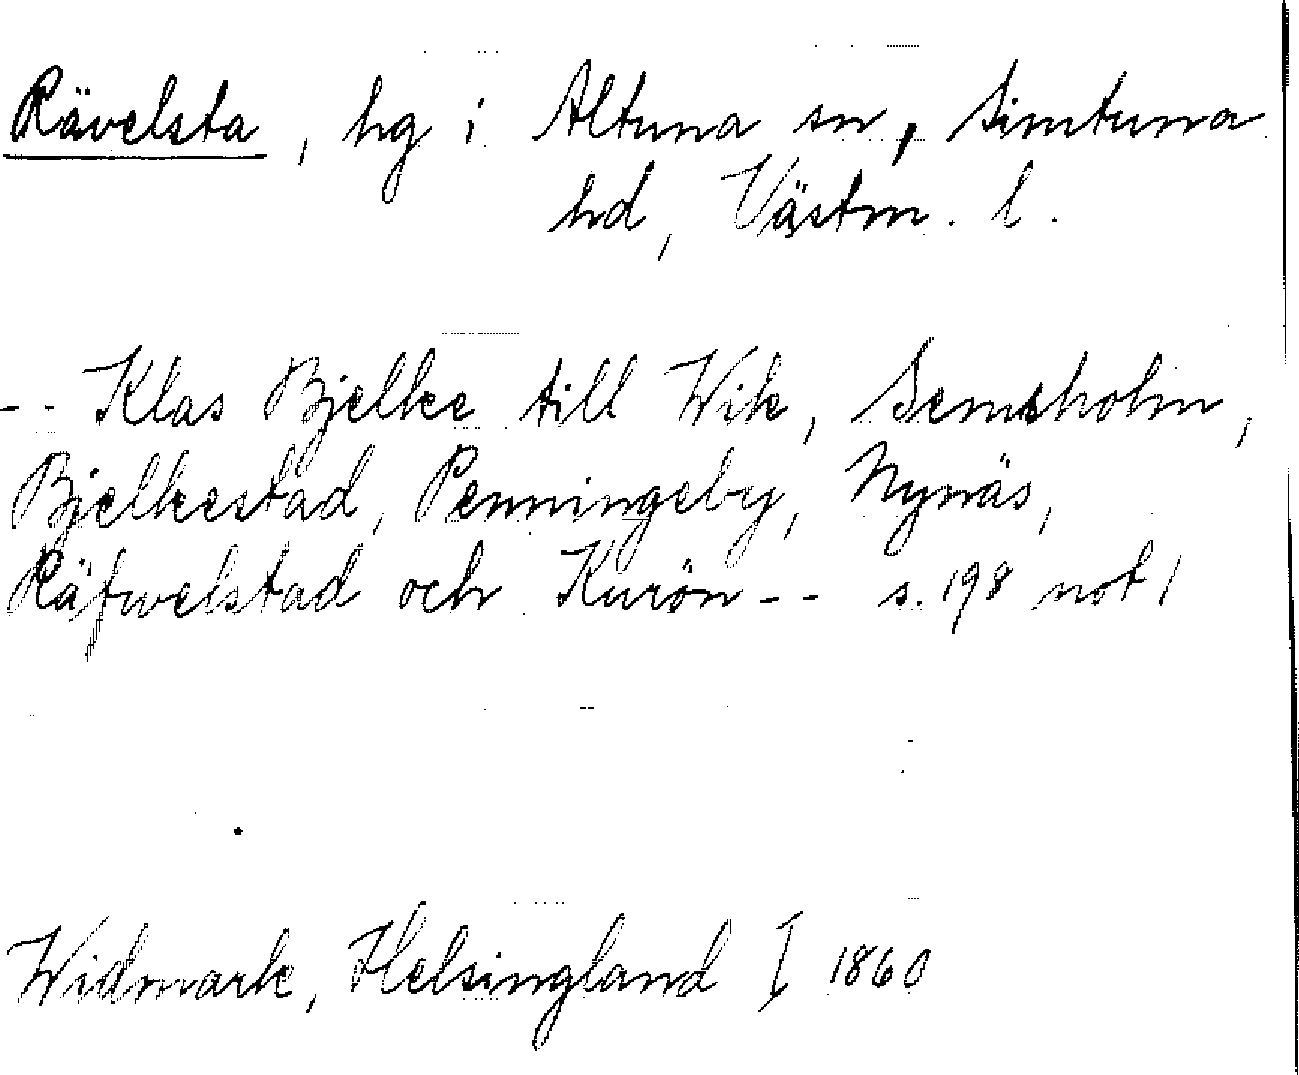 Rävelsta, hg i Altuna sn, Simtuna
hd, Västm. l.
-- Klas Bjelke till Wik, Semsholm,
Bjelkestad, Penningeby, Nynäs,
Räfwelstad och Kurön -- s. 198 not 1
Widmark, Helsingland I 1860